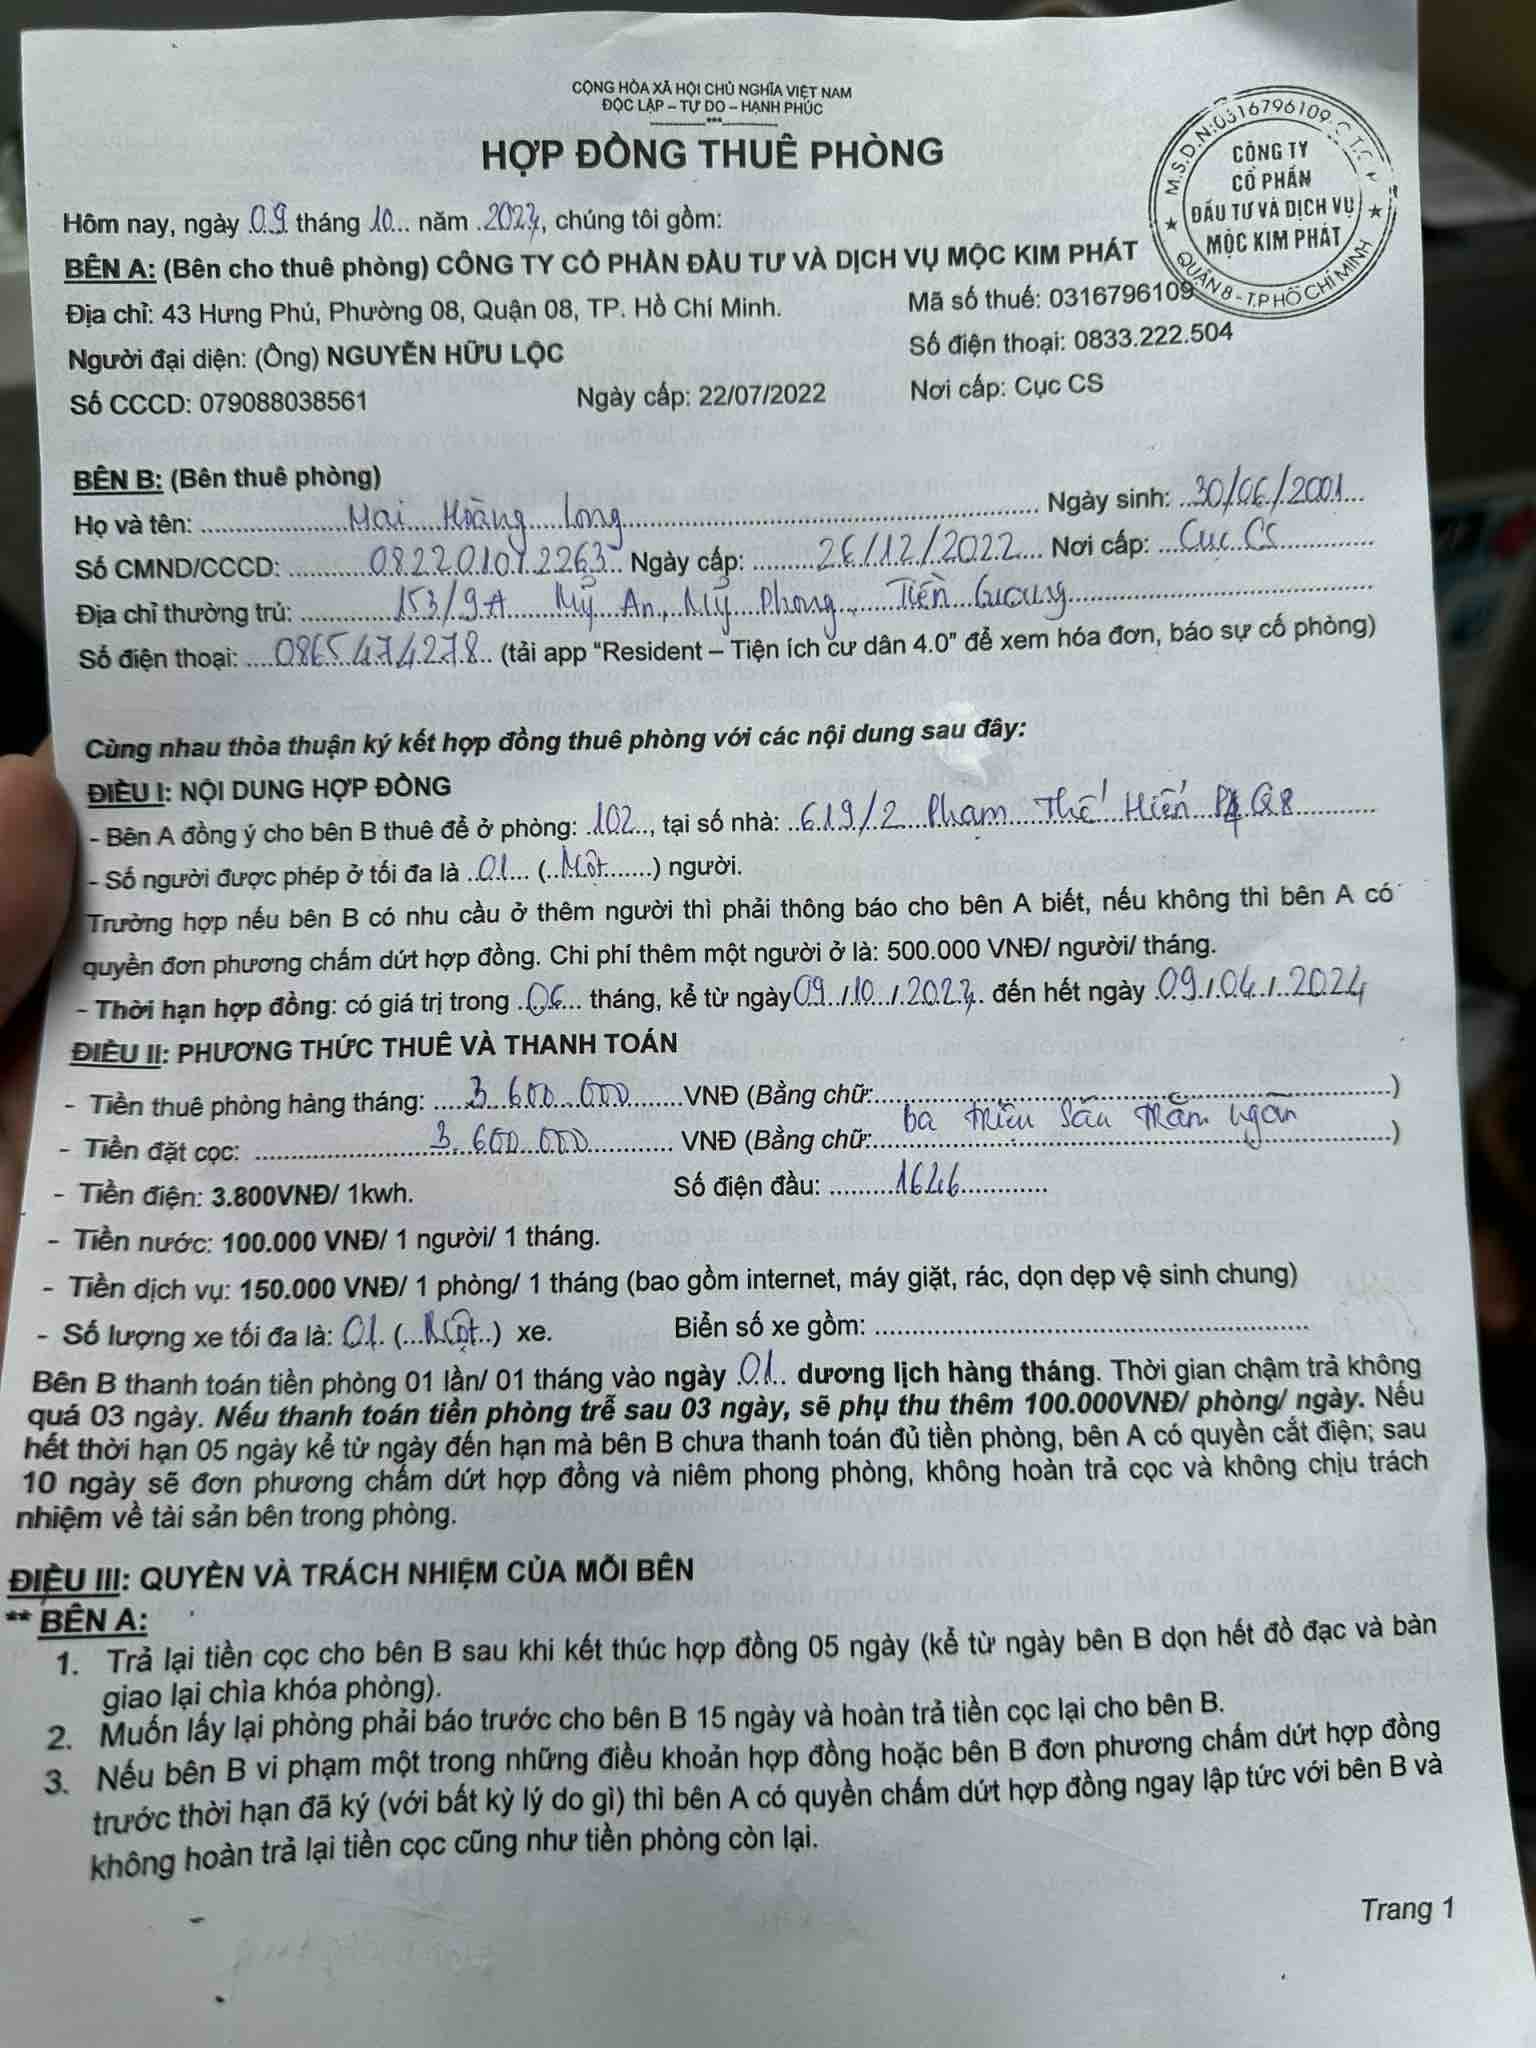 CỘNG HÒA XÃ HỘI CHỦ NGHĨA VIỆT NAM
ĐỘC LẬP – TỰ DO – HẠNH PHÚC
***
HỢP ĐỒNG THUÊ PHÒNG
M.S.D.N:0316796109
CÔNG TY
CỔ PHẦN
ĐẦU TƯ VÀ DỊCH VỤ
MỘC KIM PHÁT
QUẬN 8 - T.P HỒ CHÍ MINH
Hôm nay, ngày 09 tháng 10 năm 2023, chúng tôi gồm:
BÊN A: (Bên cho thuê phòng) CÔNG TY CỔ PHẦN ĐẦU TƯ VÀ DỊCH VỤ MỘC KIM PHÁT
Địa chỉ: 43 Hưng Phú, Phường 08, Quận 08, TP. Hồ Chí Minh. Mã số thuế: 0316796109
Người đại diện: (Ông) NGUYỄN HỮU LỘC Số điện thoại: 0833.222.504
Số CCCD: 079088038561 Ngày cấp: 22/07/2022 Nơi cấp: Cục CS
BÊN B: (Bên thuê phòng)
Họ và tên: Mai Hoàng Long Ngày sinh: 30/06/2001
Số CMND/CCCD: 082201012263 Ngày cấp: 26/12/2022 Nơi cấp: Cục CS
Địa chỉ thường trú: 153/9A Mỹ An, Mỹ Phong, Tiền Giang
Số điện thoại: 0865474278 (tải app “Resident – Tiện ích cư dân 4.0” để xem hóa đơn, báo sự cố phòng)
Cùng nhau thỏa thuận ký kết hợp đồng thuê phòng với các nội dung sau đây:
ĐIỀU I: NỘI DUNG HỢP ĐỒNG
- Bên A đồng ý cho bên B thuê để ở phòng: 102, tại số nhà: 619/2 Phạm Thế Hiển P4 Q8
- Số người được phép ở tối đa là 01 (Một) người.
Trường hợp nếu bên B có nhu cầu ở thêm người thì phải thông báo cho bên A biết, nếu không thì bên A có
quyền đơn phương chấm dứt hợp đồng. Chi phí thêm một người ở là: 500.000 VNĐ/ người/ tháng.
- Thời hạn hợp đồng: có giá trị trong 06 tháng, kể từ ngày 09/10/2023 đến hết ngày 09/04/2024
ĐIỀU II: PHƯƠNG THỨC THUÊ VÀ THANH TOÁN
- Tiền thuê phòng hàng tháng: 3 600 000 VNĐ (Bằng chữ: )
- Tiền đặt cọc: 3 600 000 VNĐ (Bằng chữ: ba triệu sáu trăm ngàn )
- Tiền điện: 3.800VNĐ/ 1kwh. Số điện đầu: 1646
- Tiền nước: 100.000 VNĐ/ 1 người/ 1 tháng.
- Tiền dịch vụ: 150.000 VNĐ/ 1 phòng/ 1 tháng (bao gồm internet, máy giặt, rác, dọn dẹp vệ sinh chung)
- Số lượng xe tối đa là: 01 (Một) xe. Biển số xe gồm:
Bên B thanh toán tiền phòng 01 lần/ 01 tháng vào ngày 01 dương lịch hàng tháng. Thời gian chậm trả không
quá 03 ngày. Nếu thanh toán tiền phòng trễ sau 03 ngày, sẽ phụ thu thêm 100.000VNĐ/ phòng/ ngày. Nếu
hết thời hạn 05 ngày kể từ ngày đến hạn mà bên B chưa thanh toán đủ tiền phòng, bên A có quyền cắt điện; sau
10 ngày sẽ đơn phương chấm dứt hợp đồng và niêm phong phòng, không hoàn trả cọc và không chịu trách
nhiệm về tài sản bên trong phòng.
ĐIỀU III: QUYỀN VÀ TRÁCH NHIỆM CỦA MỖI BÊN
** BÊN A:
1. Trả lại tiền cọc cho bên B sau khi kết thúc hợp đồng 05 ngày (kể từ ngày bên B dọn hết đồ đạc và bàn
giao lại chìa khóa phòng).
2. Muốn lấy lại phòng phải báo trước cho bên B 15 ngày và hoàn trả tiền cọc lại cho bên B.
3. Nếu bên B vi phạm một trong những điều khoản hợp đồng hoặc bên B đơn phương chấm dứt hợp đồng
trước thời hạn đã ký (với bất kỳ lý do gì) thì bên A có quyền chấm dứt hợp đồng ngay lập tức với bên B và
không hoàn trả lại tiền cọc cũng như tiền phòng còn lại.
Trang 1